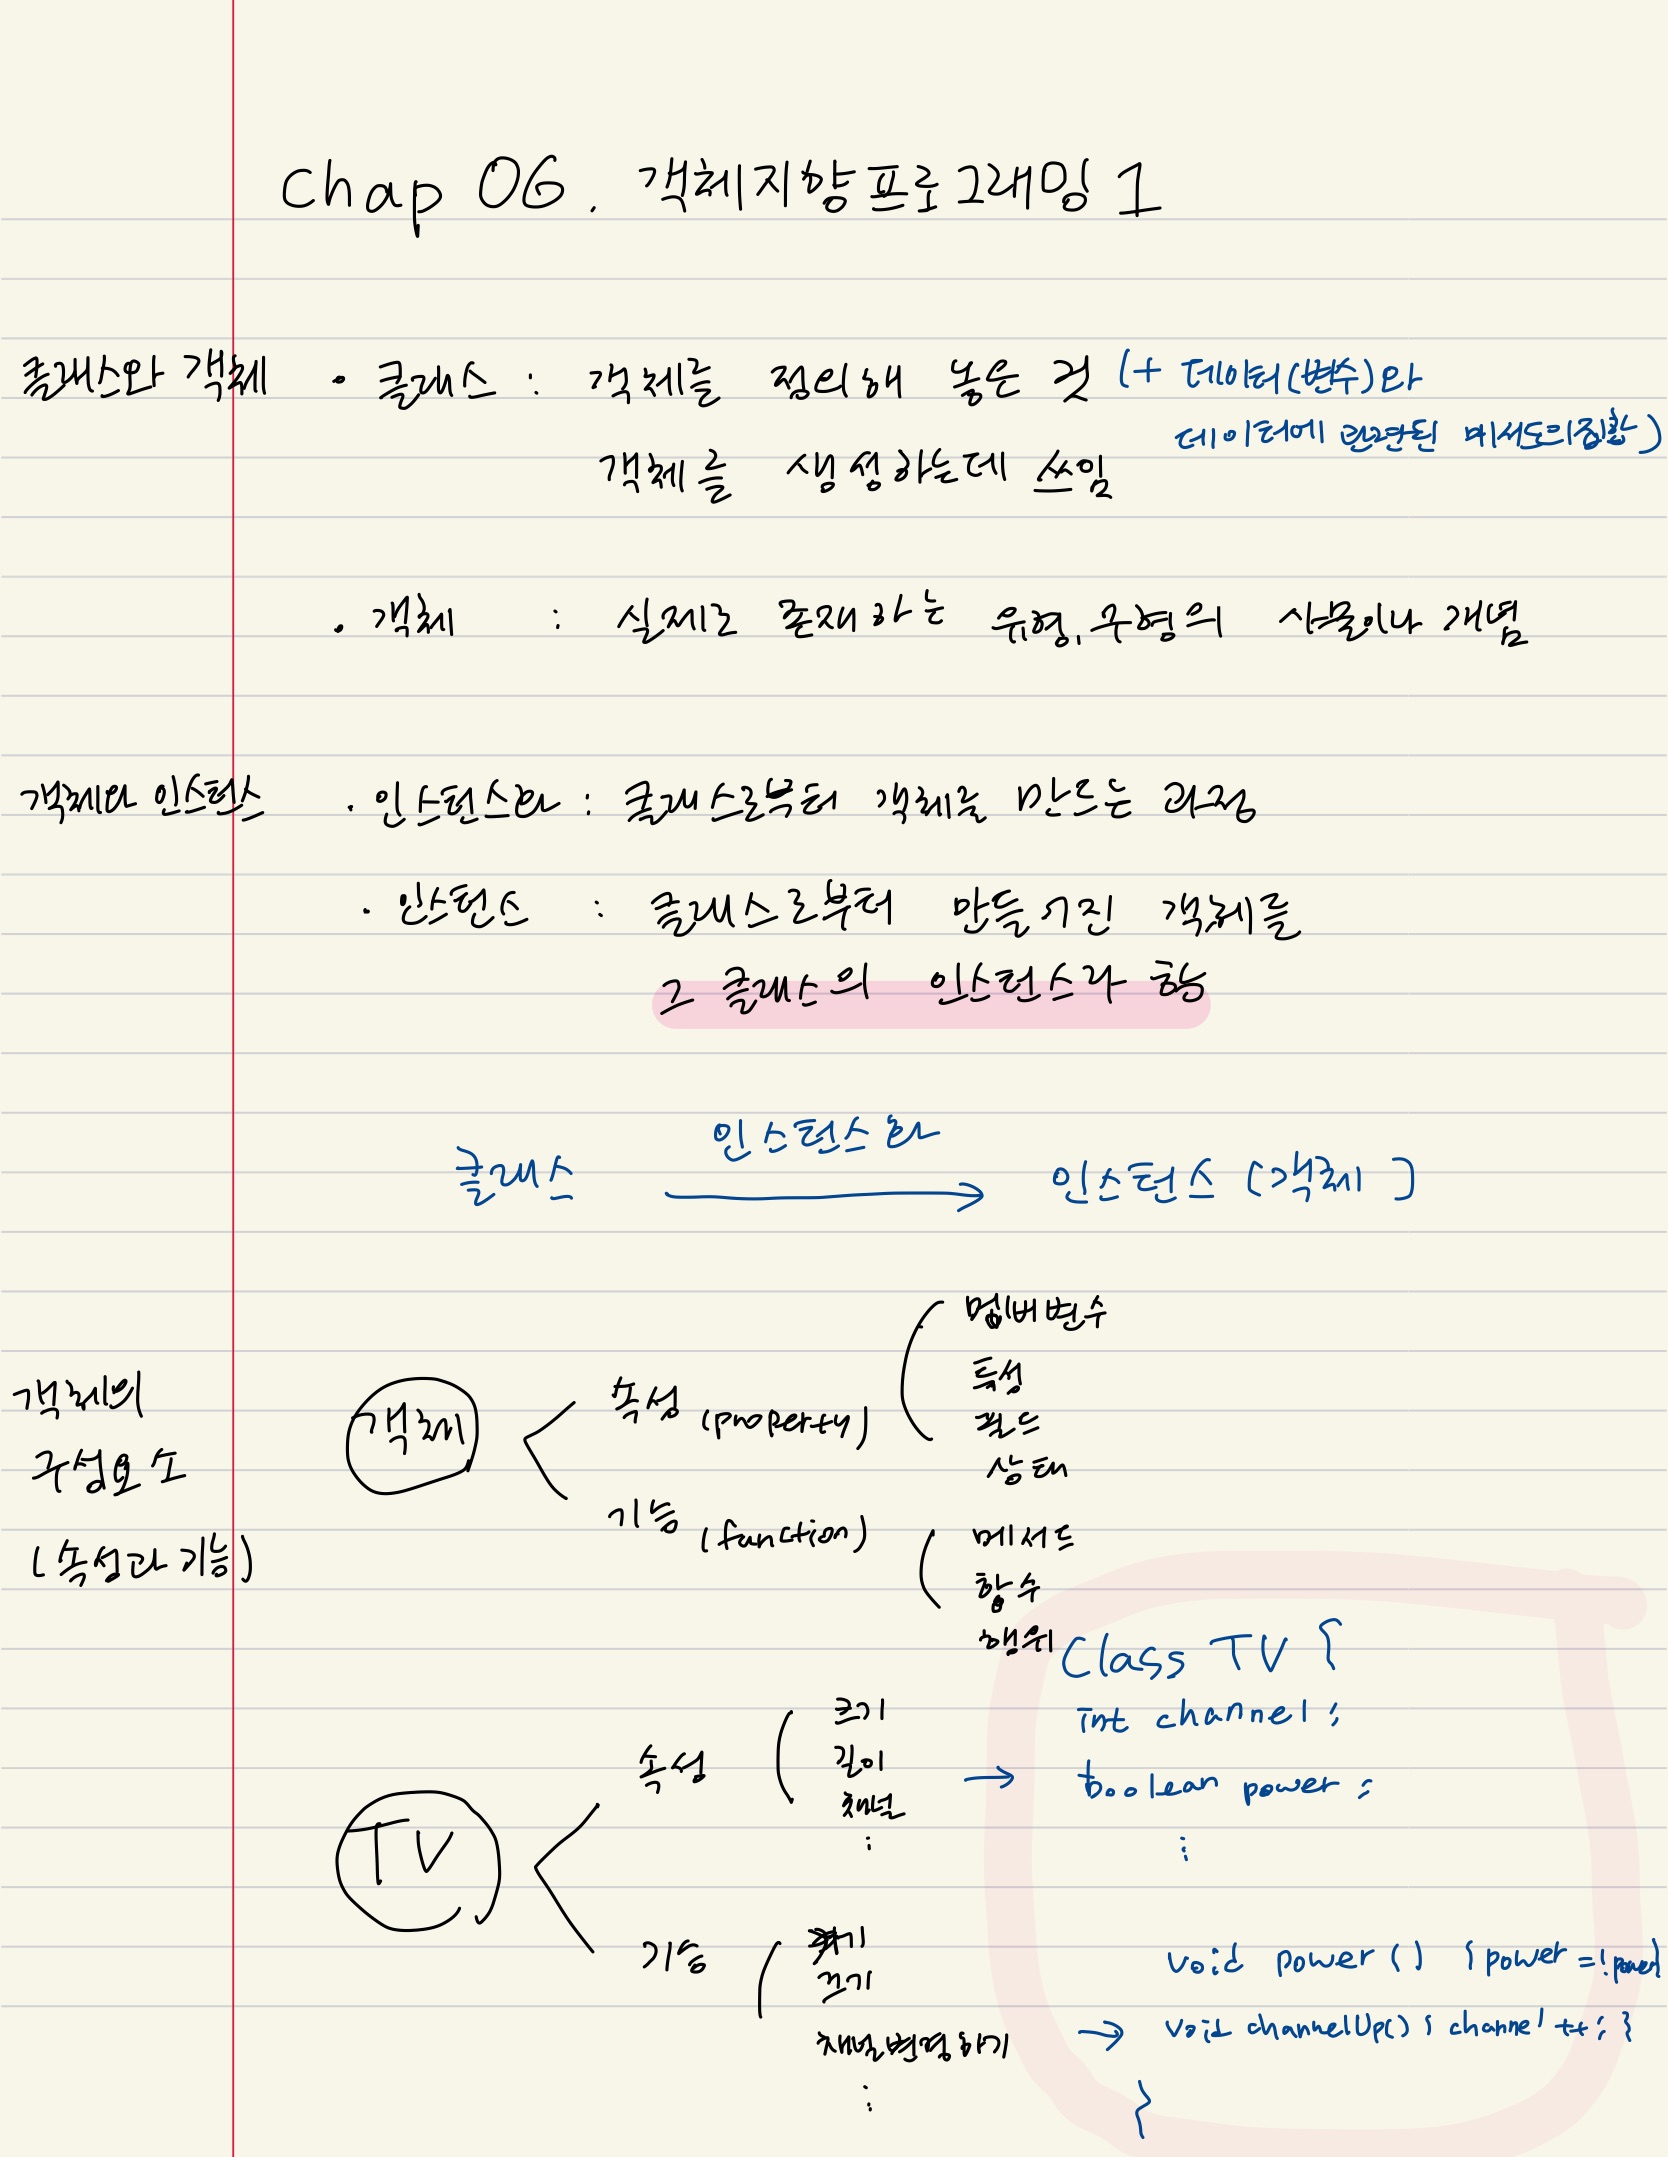 Chap 06. 객체지향프로그래밍 1
클래스와 객체
· 클래스 : 객체를 정의해 놓은 것 (+ 데이터(변수)와
데이터에 관련된 메서드의집합)
객체를 생성하는데 쓰임
· 객체 : 실제로 존재하는 유형, 무형의 사물이나 개념
객체와 인스턴스
· 인스턴스화 : 클래스로부터 객체를 만드는 과정
· 인스턴스 : 클래스로부터 만들어진 객체를
그 클래스의 인스턴스라 함
인스턴스화
클래스 → 인스턴스 (객체)
객체의
구성요소
(속성과 기능)
객체
속성 (property)
멤버변수
특성
필드
상태
기능 (function)
메서드
함수
행위
TV
속성
크기
길이
채널
⋮
기능
끄기
채널변경하기
⋮
Class TV {
→ int channel;
boolean power;
⋮
void power() {power=!power}
→ void channelUp() { channel++; }
}